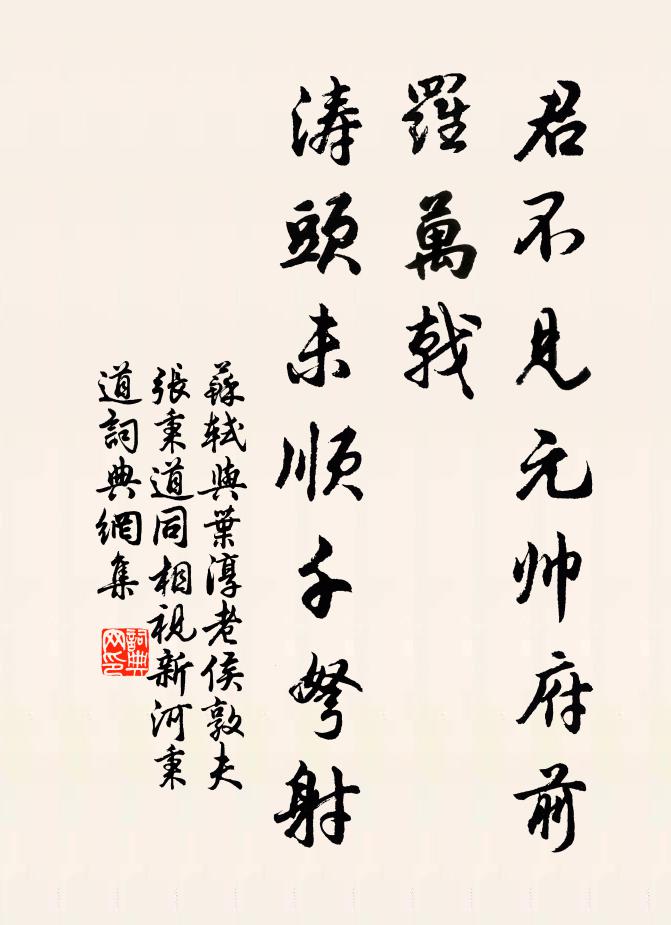 君不見元帅府前
羅萬戟
涛頭未順千弩射
蘇軾與葉淳老侯敦夫
張秉道同相視新河秉
道詞典網集
詞典
网印